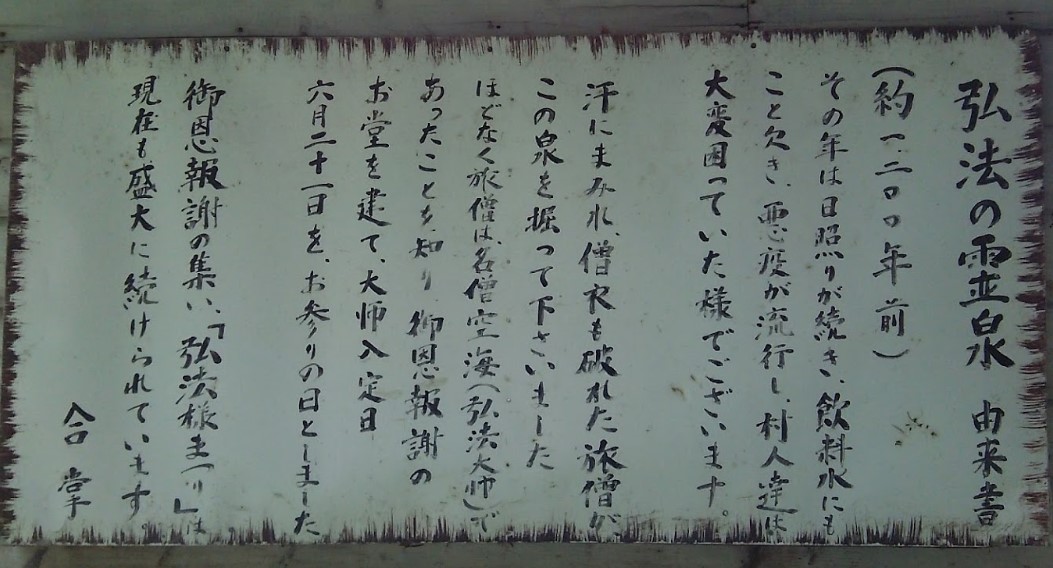 弘法の霊泉 由来書
（約一、二〇〇年前）
その年は日照りが続き、飲料水にも
こと欠き、悪疫が流行し、村人達は
大変困っていた様でございます。
汗にまみれ、僧衣も破れた旅僧が、
この泉を掘って下さいました
ほどなく旅僧は、名僧空海（弘法大師）で
あったことを知り 御恩報謝の
お堂を建て、大師入定日
六月二十一日を、お参りの日としました
御恩報謝の集い、「弘法様まつり」は
現在も盛大に続けられています。
合掌